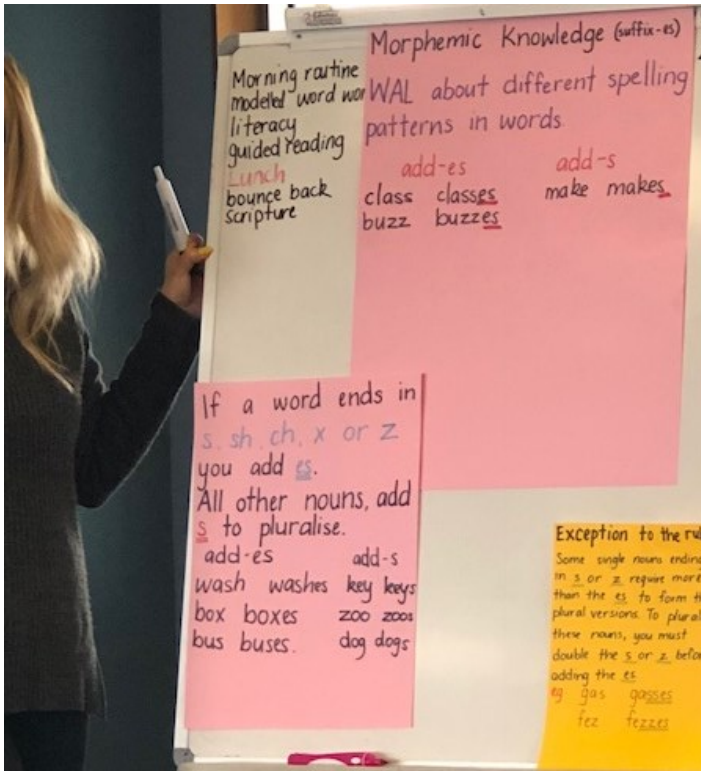 Morning routine
modelled word wor
literacy
guided reading
Lunch
bounce back
scripture
Morphemic Knowledge (suffix-es)
WAL about different spelling
patterns in words.
add-es add-s
class classes make makes
buzz buzzes
If a word ends in
s, sh, ch, x or z
you add es.
All other nouns, add
s to pluralise.
add-es add-s
wash washes key keys
box boxes zoo zoos
bus buses. dog dogs
Exception to the ru
Some single nouns ending
in s or z require more
than the es to form th
plural versions. To plural
these nouns, you must
double the s or z befo
adding the es
eg gas gasses
fez fezzes